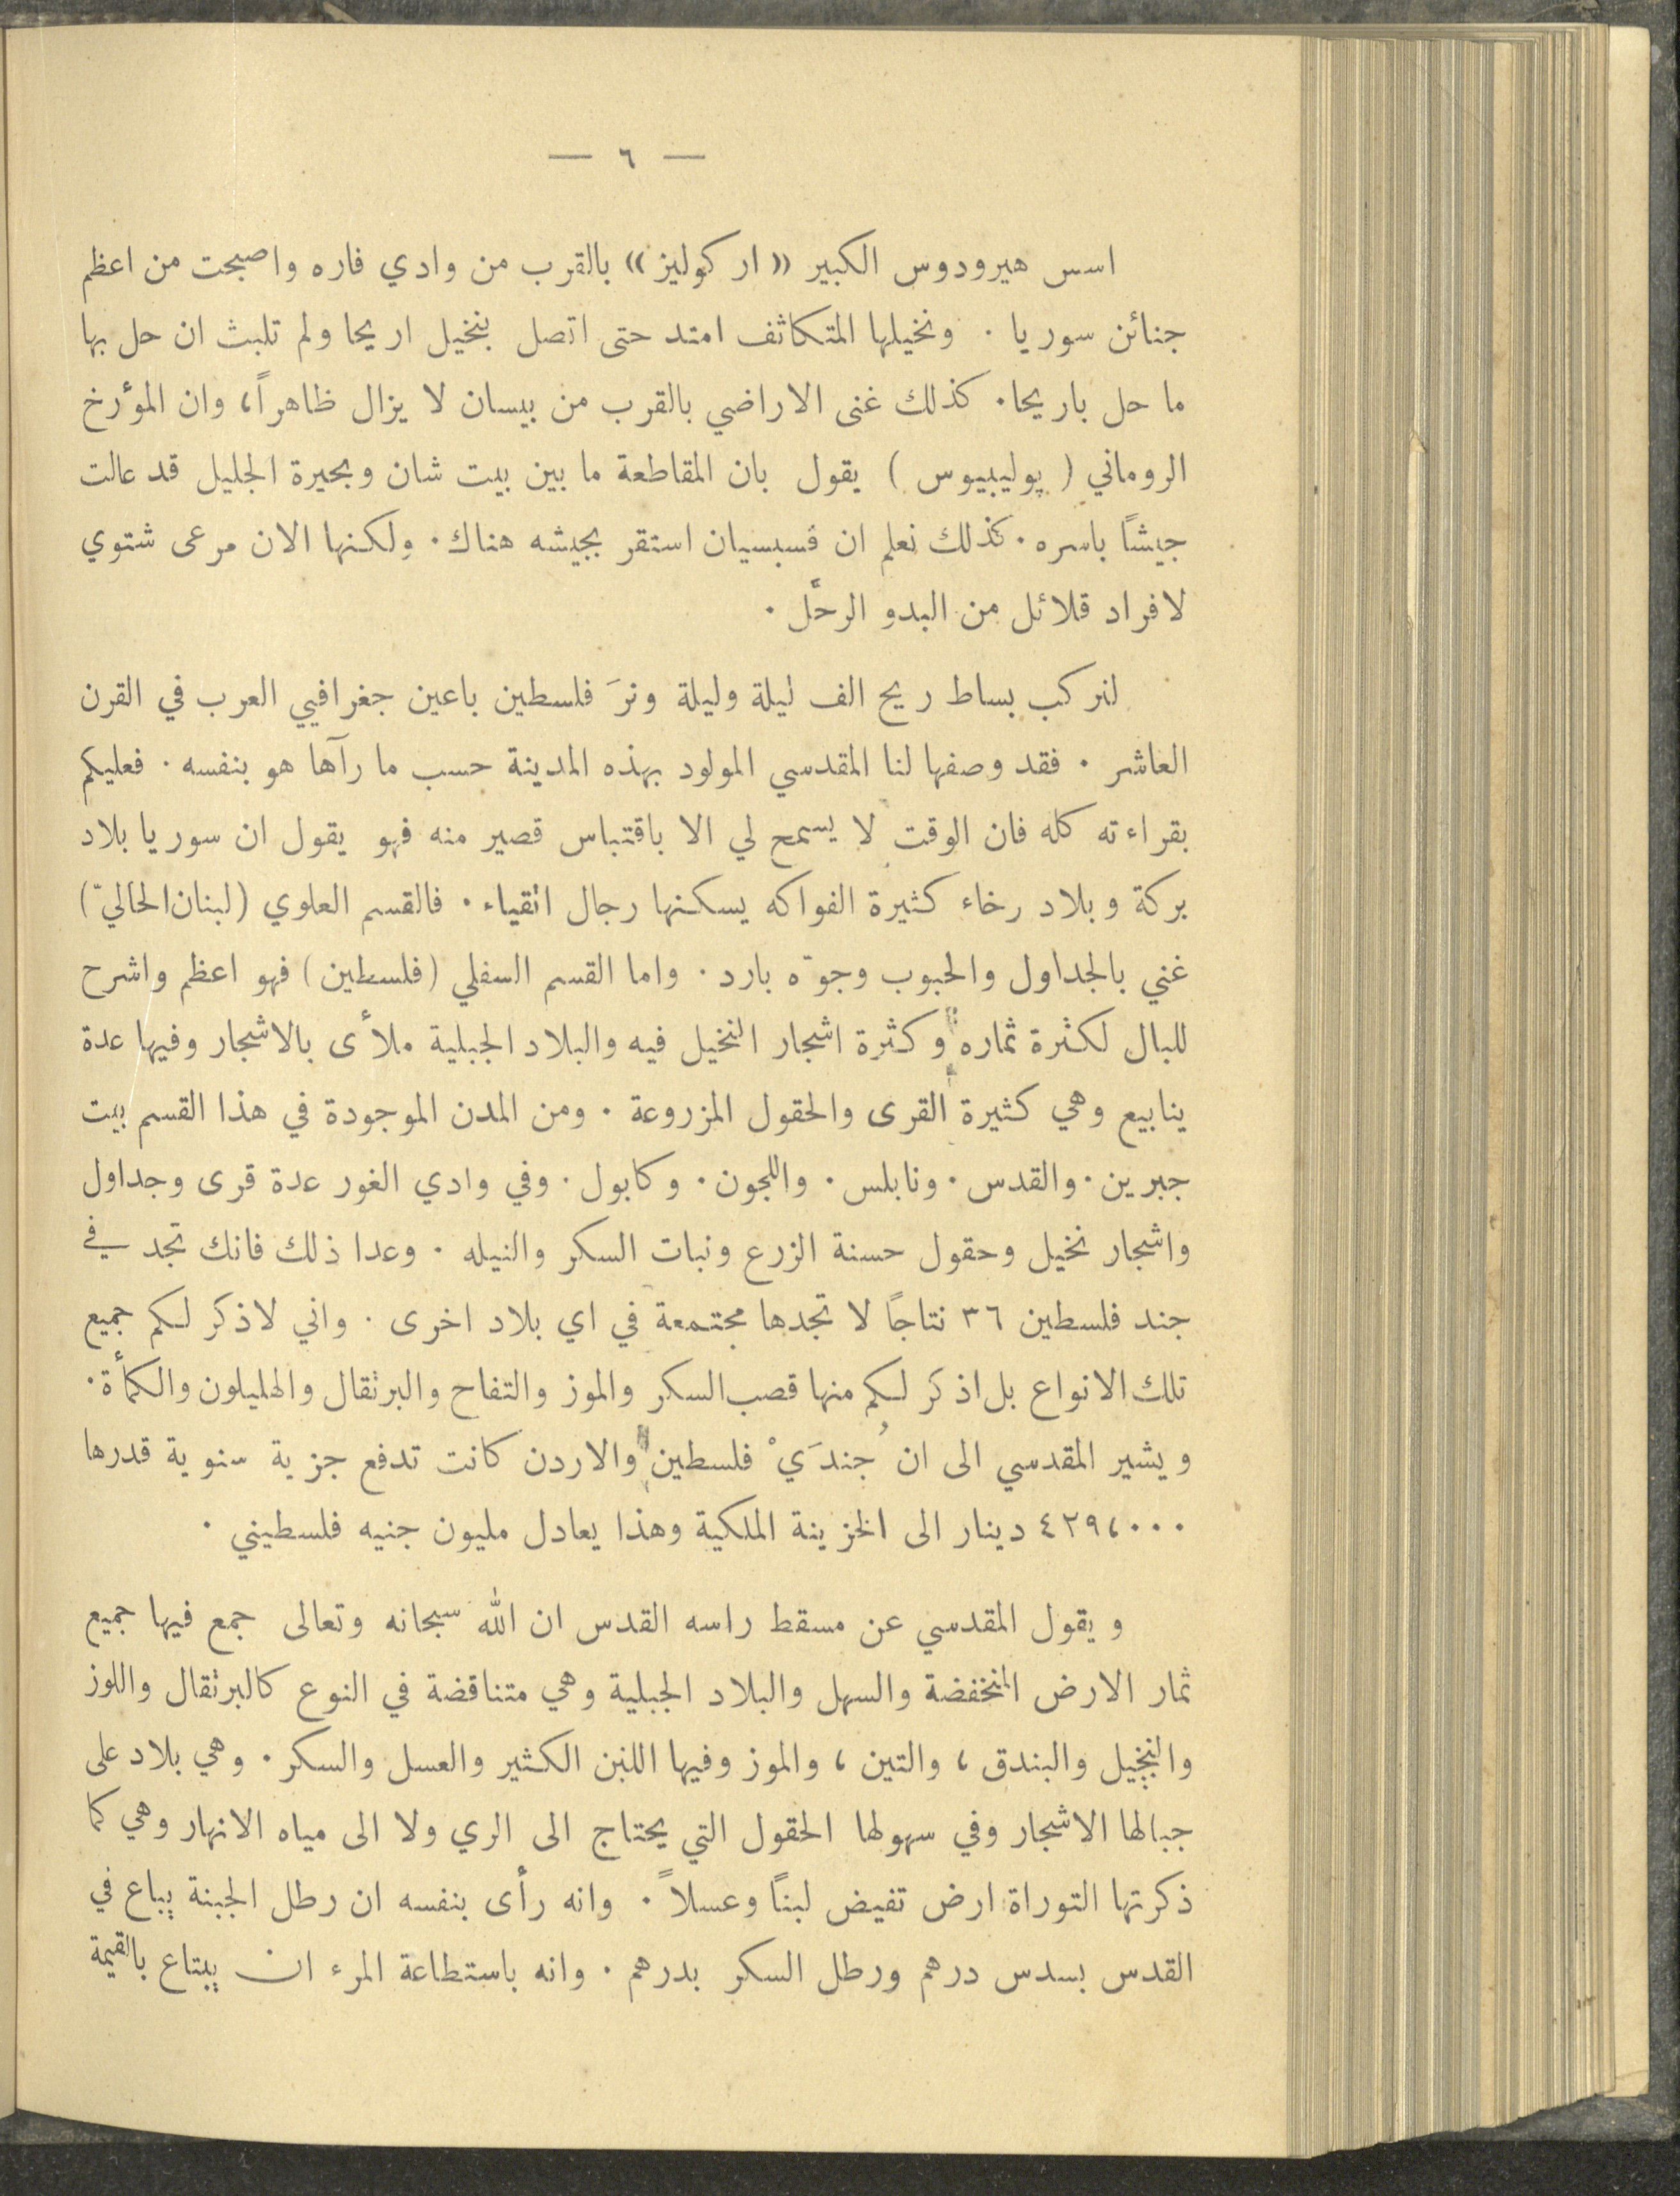 — ٦ —
اسس هيرودوس الكبير «اركوليز» بالقرب من وادي فاره واصبحت من اعظم
جنائن سوريا . ونخيلها المتكاثف امتد حتى اتصل بنخيل اريحا ولم تلبث ان حل بها
ما حل باريحا. كذلك غنى الاراضي بالقرب من بيسان لا يزال ظاهراً، وان المؤرخ
الروماني ( پوليبيوس ) يقول بان المقاطعة ما بين بيت شان وبحيرة الجليل قد عالت
جيشاً باسره. كذلك نعلم ان فسبسيان استقر بجيشه هناك. ولكنها الان مرعى شتوي
لافراد قلائل من البدو الرحّل .
لنركب بساط ريح الف ليلة وليلة ونرَ فلسطين باعين جغرافيي العرب في القرن
العاشر . فقد وصفها لنا المقدسي المولود بهذه المدينة حسب ما رآها هو بنفسه . فعليكم
بقراءته كله فان الوقت لا يسمح لي الا باقتباس قصير منه فهو يقول ان سوريا بلاد
بركة وبلاد رخاء كثيرة الفواكه يسكنها رجال اتقياء . فالقسم العلوي (لبنان الحاليّ)
غني بالجداول والحبوب وجوّه بارد . واما القسم السفلي (فلسطين) فهو اعظم واشرح
للبال لكثرة ثماره وكثرة اشجار النخيل فيه والبلاد الجبلية ملأى بالاشجار وفيها عدة
ينابيع وهي كثيرة القرى والحقول المزروعة . ومن المدن الموجودة في هذا القسم بيت
جبرين . والقدس . ونابلس . واللجون . وكابول . وفي وادي الغور عدة قرى وجداول
واشجار نخيل وحقول حسنة الزرع ونبات السكر والنيله . وعدا ذلك فانك تجد في
جند فلسطين ٣٦ نتاجاً لا تجدها مجتمعة في اي بلاد اخرى . واني لاذكر لكم جميع
تلك الانواع بل اذكر لكم منها قصب السكر والموز والتفاح والبرتقال والهليلون والكمأة .
ويشير المقدسي الى ان جُندَيْ فلسطين والاردن كانت تدفع جزية سنوية قدرها
٤٢٩،٠٠٠ دينار الى الخزينة الملكية وهذا يعادل مليون جنيه فلسطيني .
ويقول المقدسي عن مسقط راسه القدس ان الله سبحانه وتعالى جمع فيها جميع
ثمار الارض المنخفضة والسهل والبلاد الجبلية وهي متناقضة في النوع كالبرتقال واللوز
والنخيل والبندق ، والتين ، والموز وفيها اللبن الكثير والعسل والسكر . وهي بلاد على
جبالها الاشجار وفي سهولها الحقول التي يحتاج الى الري ولا الى مياه الانهار وهي كما
ذكرتها التوراة ارض تفيض لبناً وعسلاً . وانه رأى بنفسه ان رطل الجبنة يباع في
القدس بسدس درهم ورطل السكر بدرهم . وانه باستطاعة المرء ان يبتاع بالقيمة